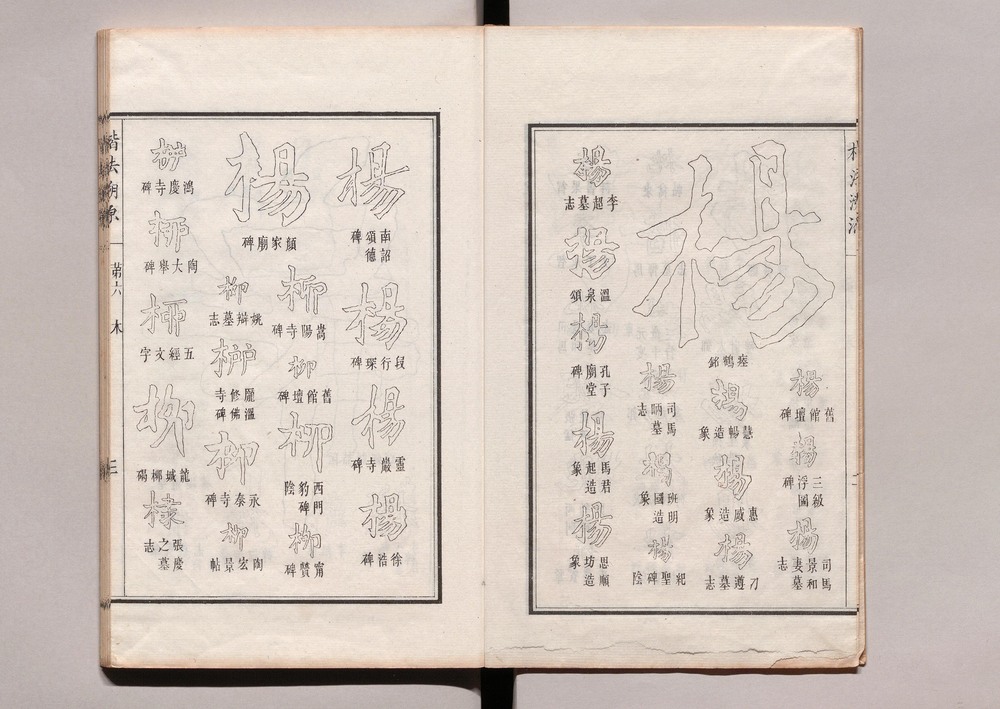 楊
瘞鶴銘
楊
舊館壇碑
楊
三級浮圖碑
楊
司馬景和妻墓志
楊
慧暢造象
楊
惠感造象
楊
刀遵墓志
楊
司馬昞墓志
楊
班國明造象
楊
祀聖碑陰
楊
李超墓志
楊
溫泉頌
楊
孔子廟堂碑
楊
馬君起造象
楊
思順坊造象
楊
南詔德頌碑
楊
段行琛碑
楊
靈巖寺碑
楊
徐浩碑
楊
顏家廟碑
柳
嵩陽寺碑
柳
舊館壇碑
柳
西門豹碑陰
柳
甯贙碑
柳
姚辯墓志
柳
龎修寺溫佛碑
柳
永泰寺碑
柳
陶宏景帖
柳
鴻慶寺碑
柳
陶大舉碑
五經文字
柳
龍城柳碣
棣
張慶之墓志
楷法溯原
第六
木
三